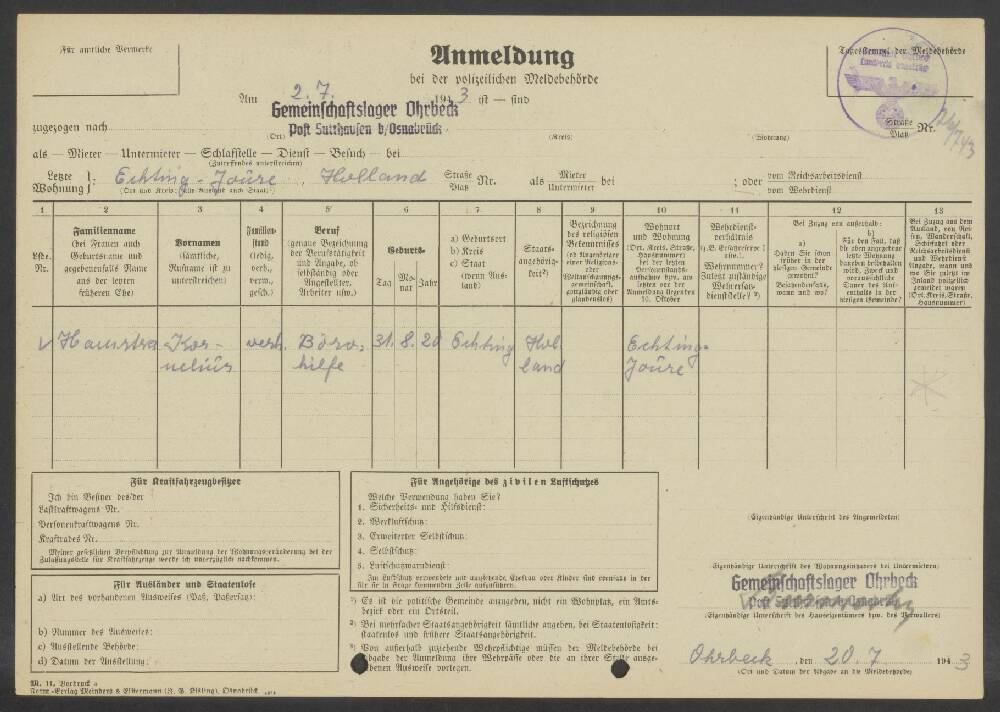 Für amtliche Vermerke
Anmeldung
bei der polizeilichen Meldebehörde
Tagesstempel der Meldebehörde
Am 2. 7. 1943 ist — sind
Gemeinschaftslager Ohrbeck
Post Sutthausen b/Osnabrück
zugezogen nach
(Ort)
(Kreis)
(Wohnung)
Straße
Platz
Nr.
als — Mieter — Untermieter — Schlafstelle — Dienst — Besuch — bei
(Zutreffendes unterstreichen)
Letzte
Wohnung
1:
Echting-Joure, Holland
Straße
Platz
Nr.
als
Mieter
Untermieter
bei
; oder
vom Reichsarbeitsdienst
vom Wehrdienst
(Ort und Kreis; für Ausland auch Staat)
1 2 3 4 5 6 7 8 9 10 11 12 13
Lfde.
Nr.
Familienname
(bei Frauen auch
Geburtsname und
gegebenenfalls Name
aus der letzten
früheren Ehe)
Vornamen
(sämtliche,
Rufname ist zu
unterstreichen)
Familien-
stand
(ledig,
verh.,
verw.,
gesch.)
Beruf
(genaue Bezeichnung
der Berufstätigkeit
und Angabe, ob
selbständig oder
Angestellter,
Arbeiter usw.)
Geburts-
Tag
Mo-
nat
Jahr
a) Geburtsort
b) Kreis
c) Staat
(wenn Aus-
land)
Staats-
angehörig-
keit²)
Bezeichnung
des religiösen
Bekenntnisses
(ob Angehöriger
einer Religions-
oder
Weltanschauungs-
gemeinschaft,
gottgläubig oder
glaubenslos)
Wohnort
und Wohnung
(Ort, Kreis, Straße,
Hausnummer)
bei der letzten
Personenstands-
aufnahme bzw. am
letzten vor der
Anmeldung liegenden
10. Oktober
Wehrdienst-
verhältnis
(z. B. Ersatzreserve I
usw.).
Wehrnummer?
Zuletzt zuständige
Wehrersatz-
dienststelle? ³)
Bei Zuzug von außerhalb:
a)
Haben Sie schon
früher in der
hiesigen Gemeinde
gewohnt?
Bejahendenfalls,
wann und wo?
b)
Für den Fall, daß
die oben angegebene
letzte Wohnung
daneben beibehalten
wird, Zweck und
voraussichtliche
Dauer des Auf-
enthalts in der
hiesigen Gemeinde?
Bei Zuzug aus dem
Ausland, von Rei-
sen, Wanderschaft,
Schiffahrt oder
Reichsarbeitsdienst
und Wehrdienst
Angabe, wann und
wo Sie zuletzt im
Inland polizeilich
gemeldet waren
(Ort, Kreis, Straße,
Hausnummer)
Haunstra Kor- verh. Büro- 31. 8. 20 Echting Hol Echting-
nelius hilfe land Joure
Für Kraftfahrzeugbesitzer
Ich bin Besitzer des/der
Lastkraftwagens Nr.
Personenkraftwagens Nr.
Kraftrades Nr.
Meiner gesetzlichen Verpflichtung zur Anmeldung der Wohnungsveränderung bei der
Zulassungsstelle für Kraftfahrzeuge werde ich unverzüglich nachkommen.
Für Ausländer und Staatenlose
a) Art des vorhandenen Ausweises (Paß, Paßersatz):
b) Nummer des Ausweises:
c) Ausstellende Behörde:
d) Datum der Ausstellung:
Für Angehörige des zivilen Luftschutzes
Welche Verwendung haben Sie?
1. Sicherheits- und Hilfsdienst:
2. Werkluftschutz:
3. Erweiterter Selbstschutz:
4. Selbstschutz:
5. Luftschutzwarndienst:
Im Luftschutz verwendete mit umziehende Ehefrau oder Kinder sind ebenfalls in der
für sie in Frage kommenden Zeile aufzuführen.
¹) Es ist die politische Gemeinde anzugeben, nicht ein Wohnplatz, ein Amts-
bezirk oder ein Ortsteil.
²) Bei mehrfacher Staatsangehörigkeit sämtliche angeben, bei Staatenlosigkeit:
staatenlos und frühere Staatsangehörigkeit.
³) Von außerhalb zuziehende Wehrpflichtige müssen der Meldebehörde bei
Abgabe der Anmeldung ihre Wehrpässe oder die an ihrer Stelle ausge-
gebenen Ausweise vorlegen.
(Eigenhändige Unterschrift des Angemeldeten)
(Eigenhändige Unterschrift des Wohnungsinhabers bei Untermietern)
Gemeinschaftslager Ohrbeck
(Eigenhändige Unterschrift des Hauseigentümers bzw. des Verwalters)
Ohrbeck, den 20. 7. 1943
(Ort und Datum der Abgabe an die Meldebehörde)
M. 11. Vordruck a